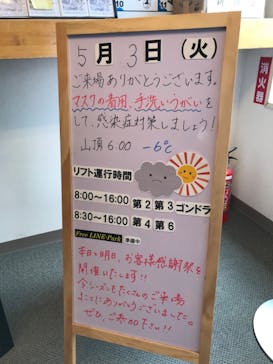 5月3日(火)
ご来場ありがとうございます。
マスクの着用、手洗いうがいを
して、感染症対策しましょう!
山頂 6:00 -6℃
リフト運行時間
8:00〜16:00 第2 第3 ゴンドラ
8:30〜16:00 第4 第6
Free LINE Park 準備中
本日と明日、お客様感謝祭を
開催いたします!!
今シーズンもたくさんのご来場
まことにありがとうございました。
ぜひ、ご参加下さい!!
消火器